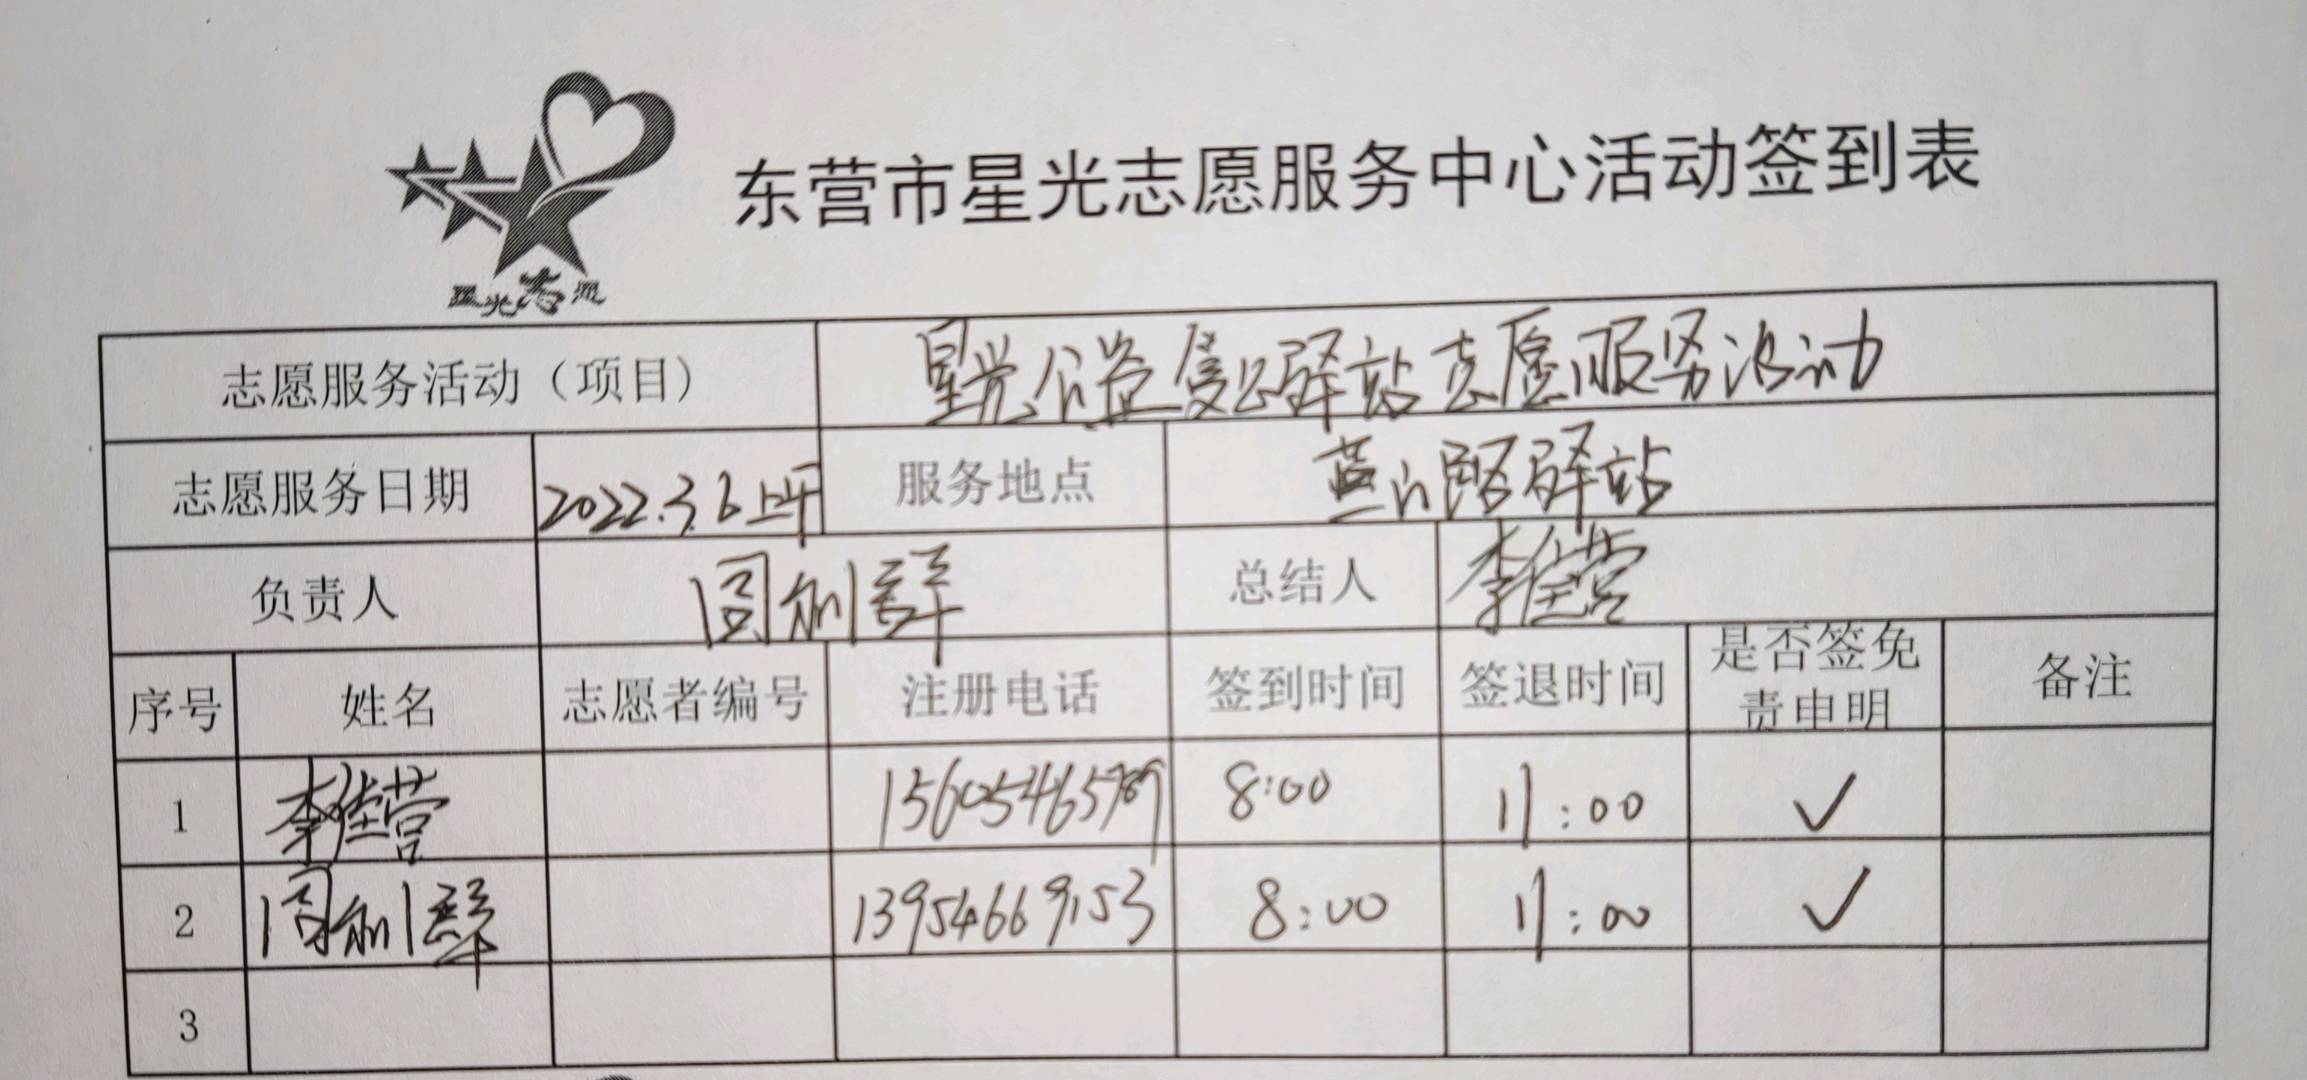 东营市星光志愿服务中心活动签到表
星光志愿
志愿服务活动（项目） 星光公益爱心驿站志愿服务活动
志愿服务日期 2022.3.6上午 服务地点 驿站
负责人 总结人 李佳营
序号 姓名 志愿者编号 注册电话 签到时间 签退时间 是否签免责申明 备注
1 李佳营 15605465789 8:00 11:00 ✓
2 13954669153 8:00 11:00 ✓
3